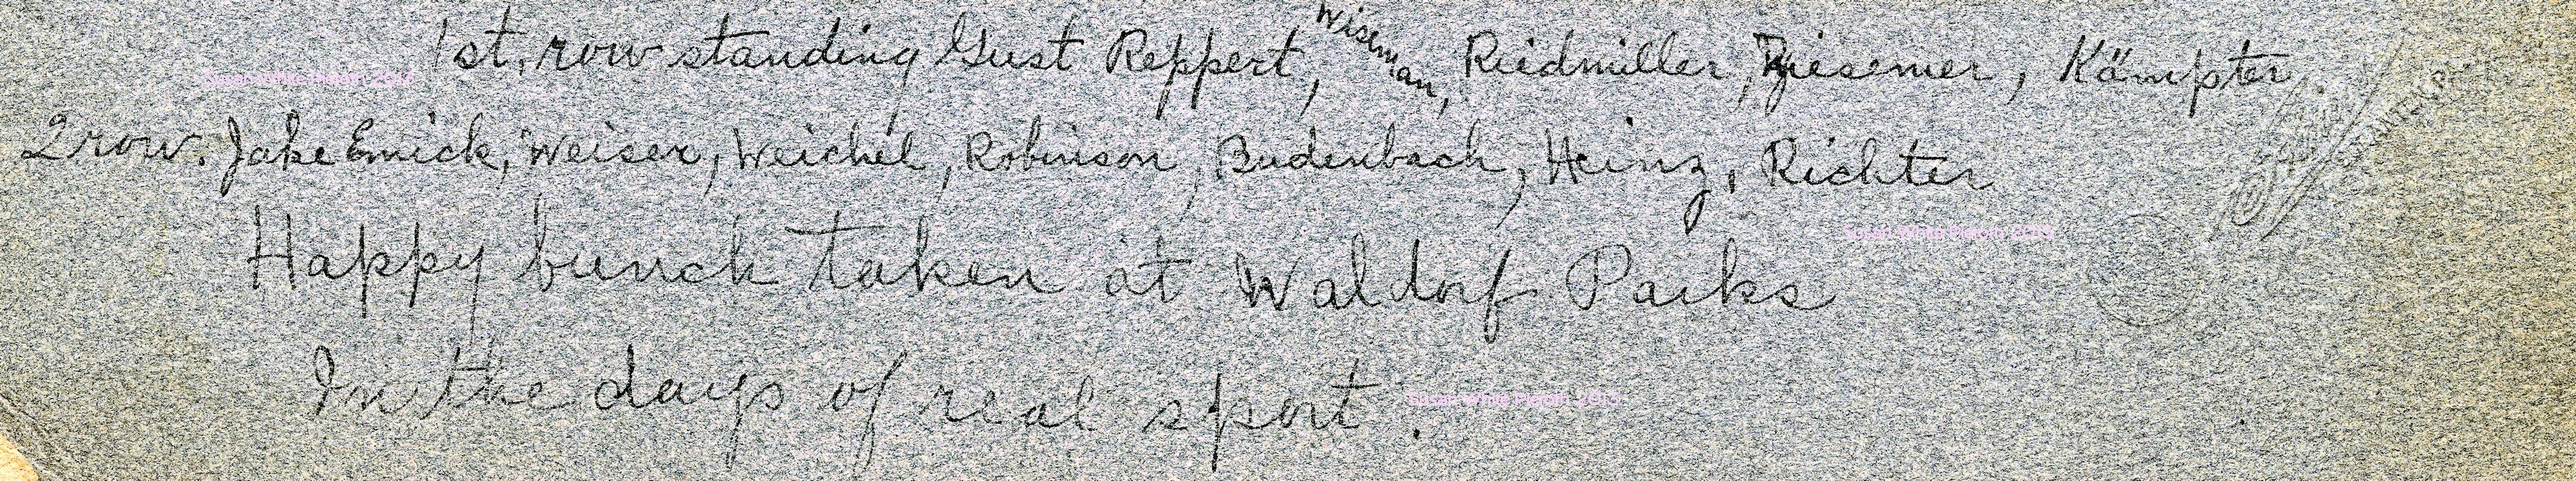 1st, row standing Gust Reppert, Wiseman, Riedmiller, Riesemer, Kämpter.
2 row. Jake Emick, Weiser, Weichel, Robinson, Budenbach, Heinz, Richter
Happy bunch taken at Waldorf Parks
In the days of real sport.
Susan White Pieroth 2013
Susan White Pieroth 2013
Susan White Pieroth 2013